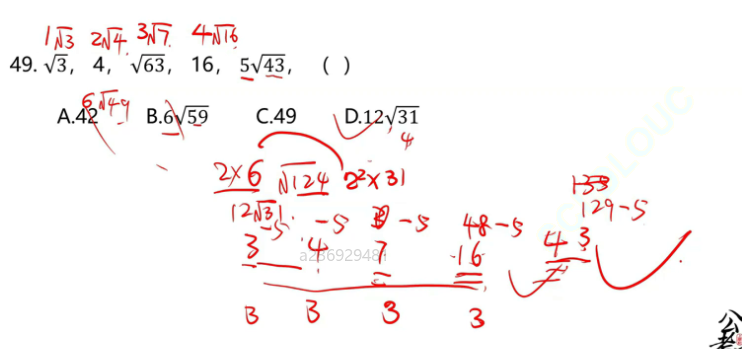 1√3 2√4 3√7 4√16
49. √3, 4, √63, 16, 5√43, ( )
6√49
A.42 B.6√59 C.49 D.12√31
4
2×6 √124 2²×31
12√31
-5 -5 -5 48-5 129-5
3 4 7 16 43
a236929481
3 3 3 3